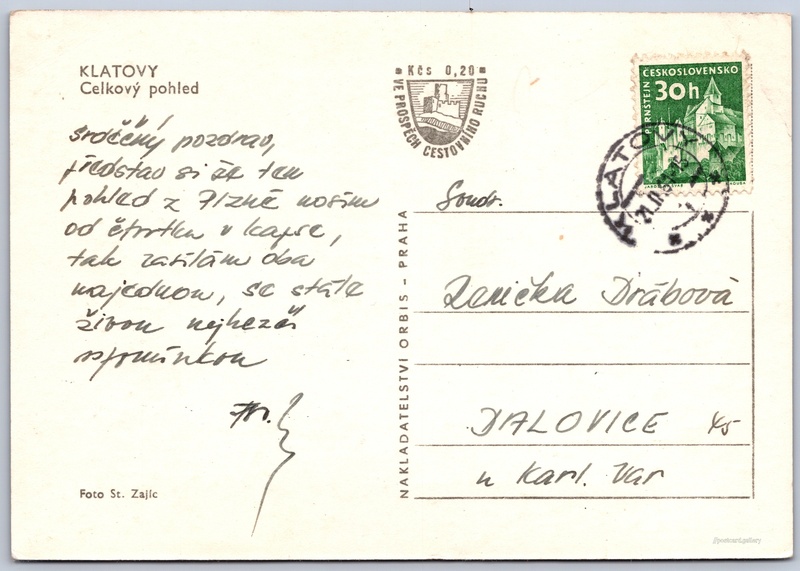 KLATOVY
Celkový pohled
Srdečný pozdrav,
představ si že ten
pohled z Plzně nosím
od čtvrtka v kapse,
tak zasílám oba
najednou, se stále
živou nejhezčí
vzpomínkou
Kčs 0,20
VE PROSPĚCH CESTOVNÍHO RUCHU
ČESKOSLOVENSKO
30h
PERNŠTEJN
KLATOVY
Soudr.
Zdenička Drábová
DALOVICE 45
u Karl. Var
NAKLADATELSTVÍ ORBIS – PRAHA
Foto St. Zajíc